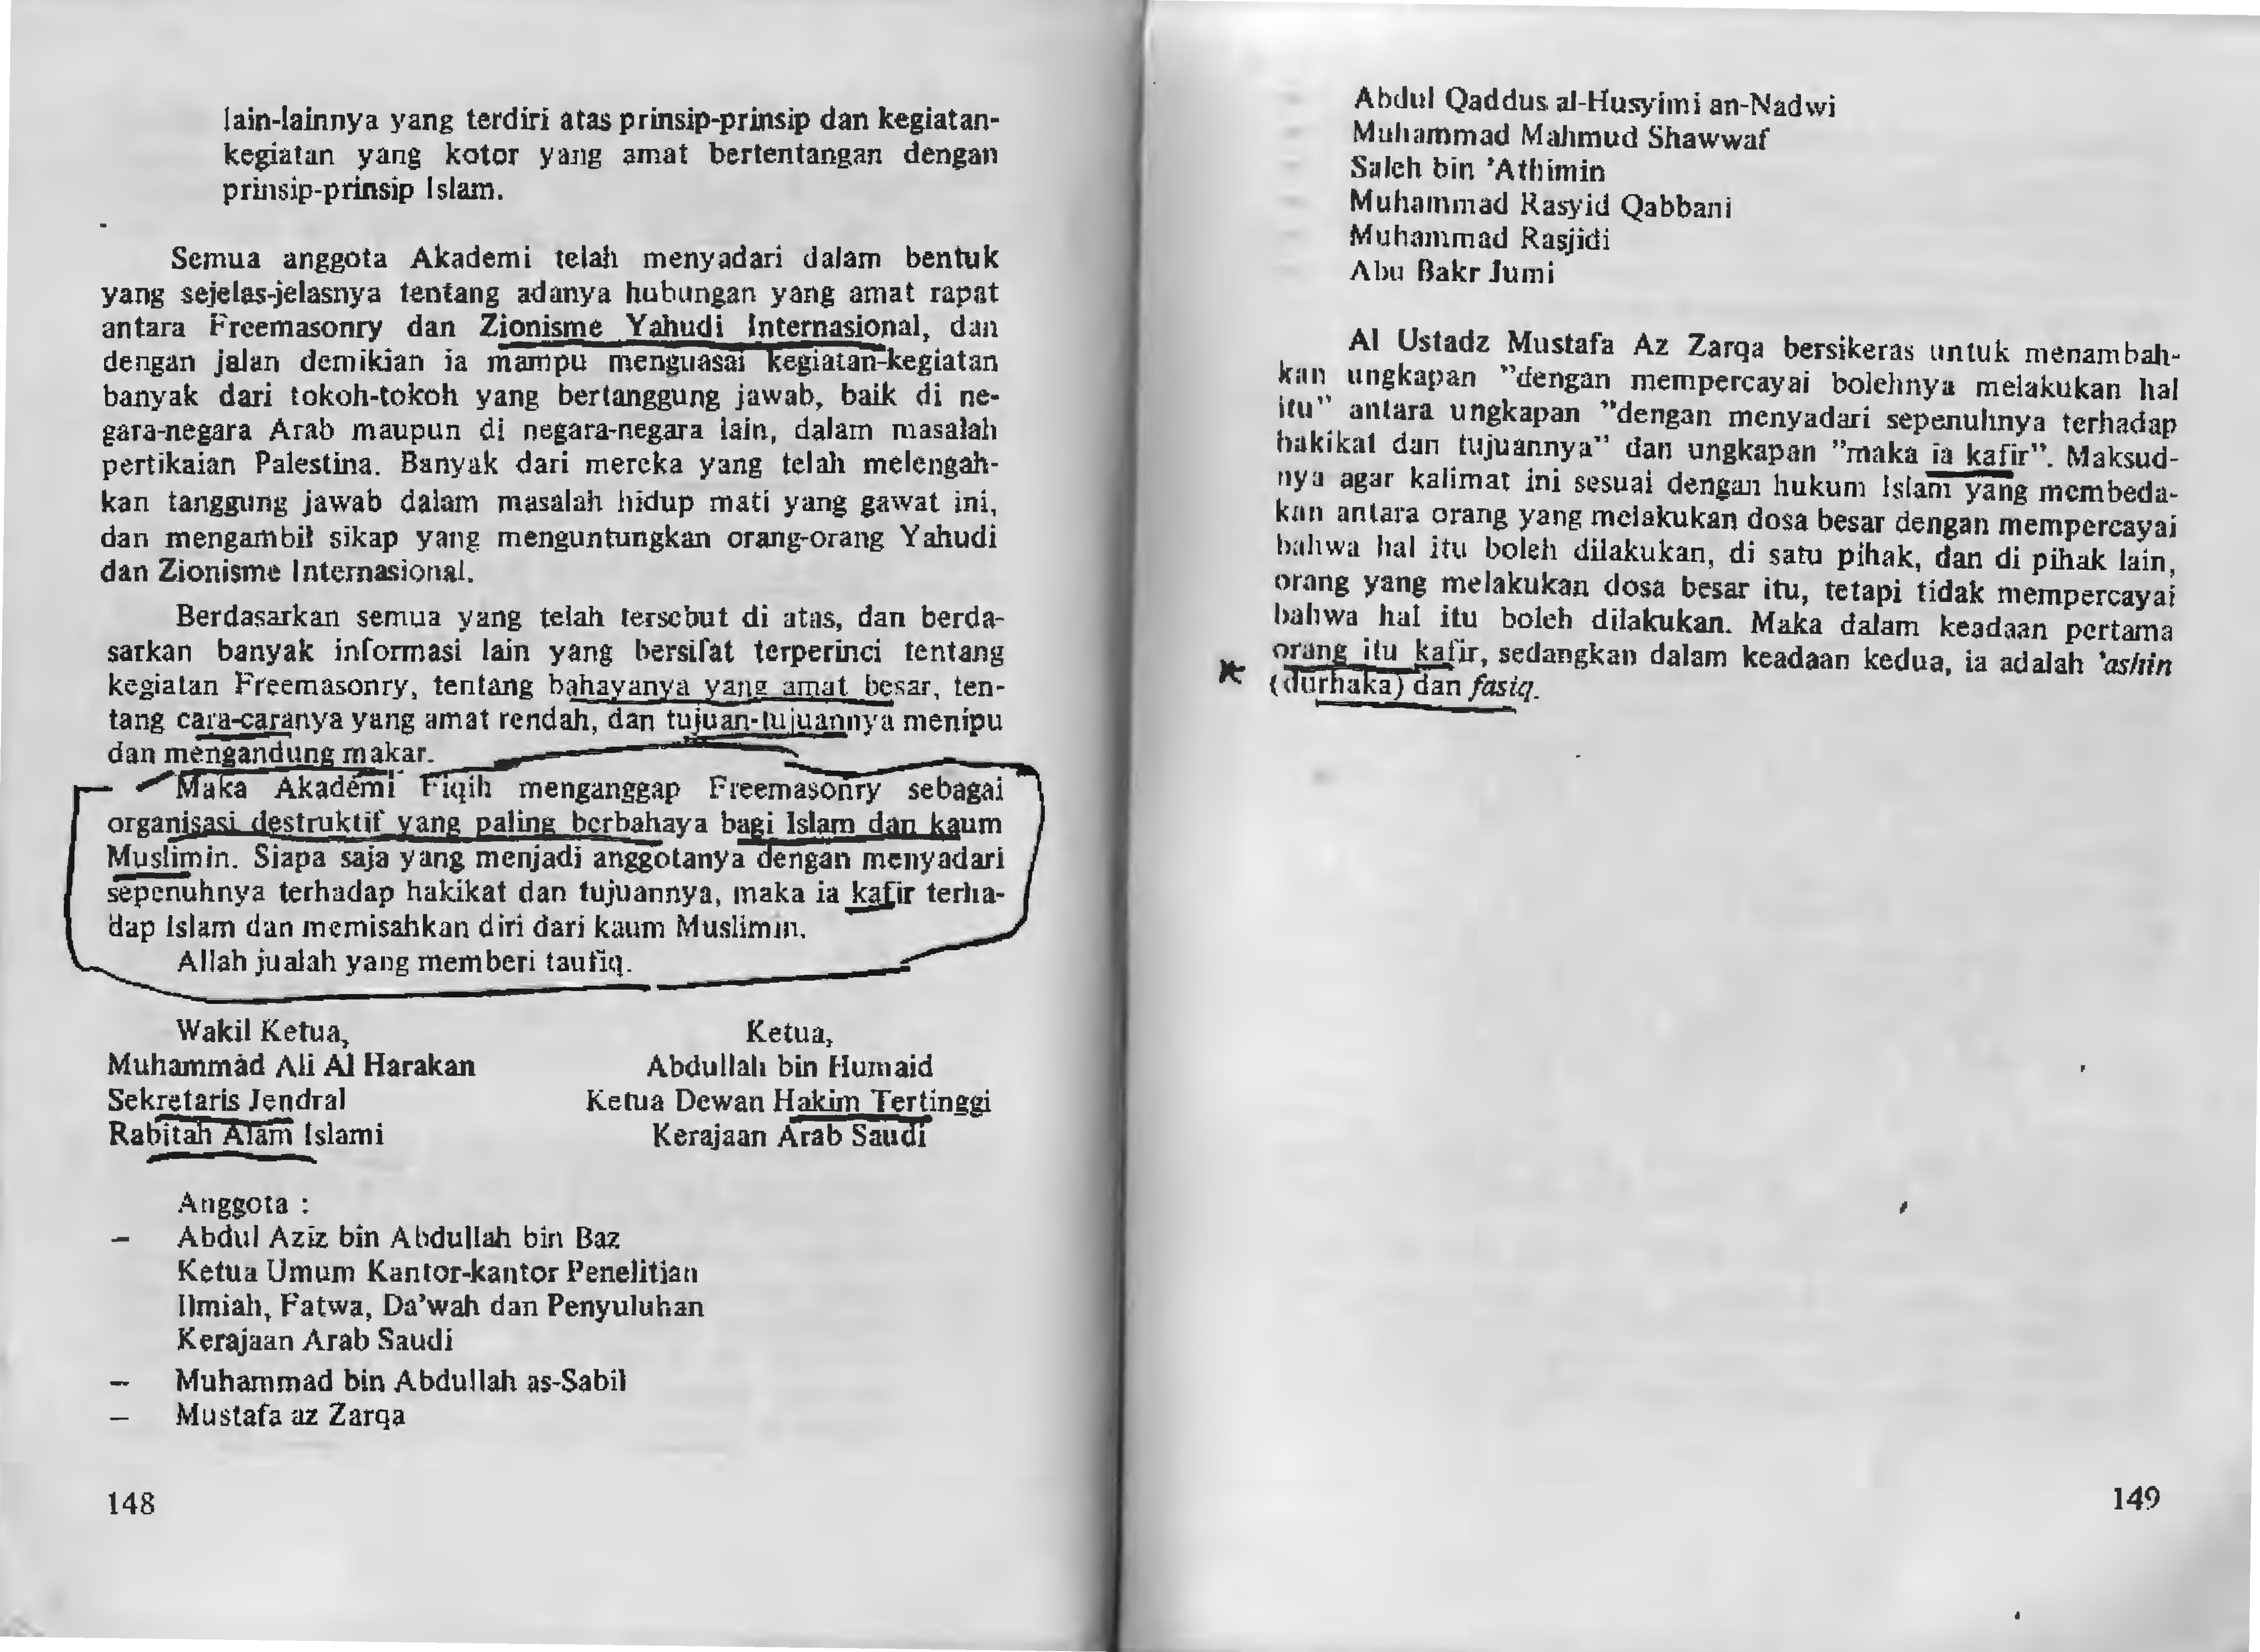 lain-lainnya yang terdiri atas prinsip-prinsip dan kegiatan-
kegiatan yang kotor yang amat bertentangan dengan
prinsip-prinsip Islam.
Semua anggota Akademi telah menyadari dalam bentuk
yang sejelas-jelasnya tentang adanya hubungan yang amat rapat
antara Freemasonry dan Zionisme Yahudi Internasional, dan
dengan jalan demikian ia mampu menguasai kegiatan-kegiatan
banyak dari tokoh-tokoh yang bertanggung jawab, baik di ne-
gara-negara Arab maupun di negara-negara lain, dalam masalah
pertikaian Palestina. Banyak dari mereka yang telah melengah-
kan tanggung jawab dalam masalah hidup mati yang gawat ini,
dan mengambil sikap yang menguntungkan orang-orang Yahudi
dan Zionisme Internasional.
Berdasarkan semua yang telah tersebut di atas, dan berda-
sarkan banyak informasi lain yang bersifat terperinci tentang
kegiatan Freemasonry, tentang bahayanya yang amat besar, ten-
tang cara-caranya yang amat rendah, dan tujuan-tujuannya menipu
dan mengandung makar.
Maka Akademi Fiqih menganggap Freemasonry sebagai
organisasi destruktif yang paling berbahaya bagi Islam dan kaum
Muslimin. Siapa saja yang menjadi anggotanya dengan menyadari
sepenuhnya terhadap hakikat dan tujuannya, maka ia kafir terha-
dap Islam dan memisahkan diri dari kaum Muslimin.
Allah jualah yang memberi taufiq.
Wakil Ketua,
Muhammad Ali Al Harakan
Sekretaris Jendral
Rabitah Alam Islami
Ketua,
Abdullah bin Humaid
Ketua Dewan Hakim Tertinggi
Kerajaan Arab Saudi
Anggota :
– Abdul Aziz bin Abdullah bin Baz
Ketua Umum Kantor-kantor Penelitian
Ilmiah, Fatwa, Da'wah dan Penyuluhan
Kerajaan Arab Saudi
– Muhammad bin Abdullah as-Sabil
– Mustafa az Zarqa
148
Abdul Qaddus al-Husyimi an-Nadwi
Muhammad Mahmud Shawwaf
Saleh bin 'Athimin
Muhammad Rasyid Qabbani
Muhammad Rasjidi
Abu Bakr Jumi
Al Ustadz Mustafa Az Zarqa bersikeras untuk menambah-
kan ungkapan "dengan mempercayai bolehnya melakukan hal
itu" antara ungkapan "dengan menyadari sepenuhnya terhadap
hakikat dan tujuannya" dan ungkapan "maka ia kafir". Maksud-
nya agar kalimat ini sesuai dengan hukum Islam yang membeda-
kan antara orang yang melakukan dosa besar dengan mempercayai
bahwa hal itu boleh dilakukan, di satu pihak, dan di pihak lain,
orang yang melakukan dosa besar itu, tetapi tidak mempercayai
bahwa hal itu boleh dilakukan. Maka dalam keadaan pertama
orang itu kafir, sedangkan dalam keadaan kedua, ia adalah 'ashin
(durhaka) dan fasiq.
149